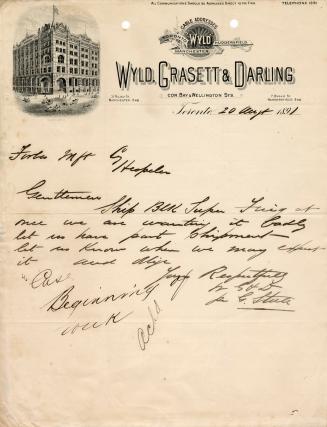 All Communications Should be Addressed Direct to the Firm
Telephone 1291
Cable Addresses
WYLD
Huddersfield
Manchester
Wyld, Grasett & Darling
Cor. Bay & Wellington Sts.
Manchester Eng.
Huddersfield Eng.
Toronto, 20 Augt 1891
Forbes Mfg Co
Hespeler
Gentlemen
Ship Blk Super at
once we are wanting it badly
let us have part Shipment
let us know when we may expect
it and oblige
Yours Respectfully
W G & D
per E. Steele
Case
Beginning
week
ackd